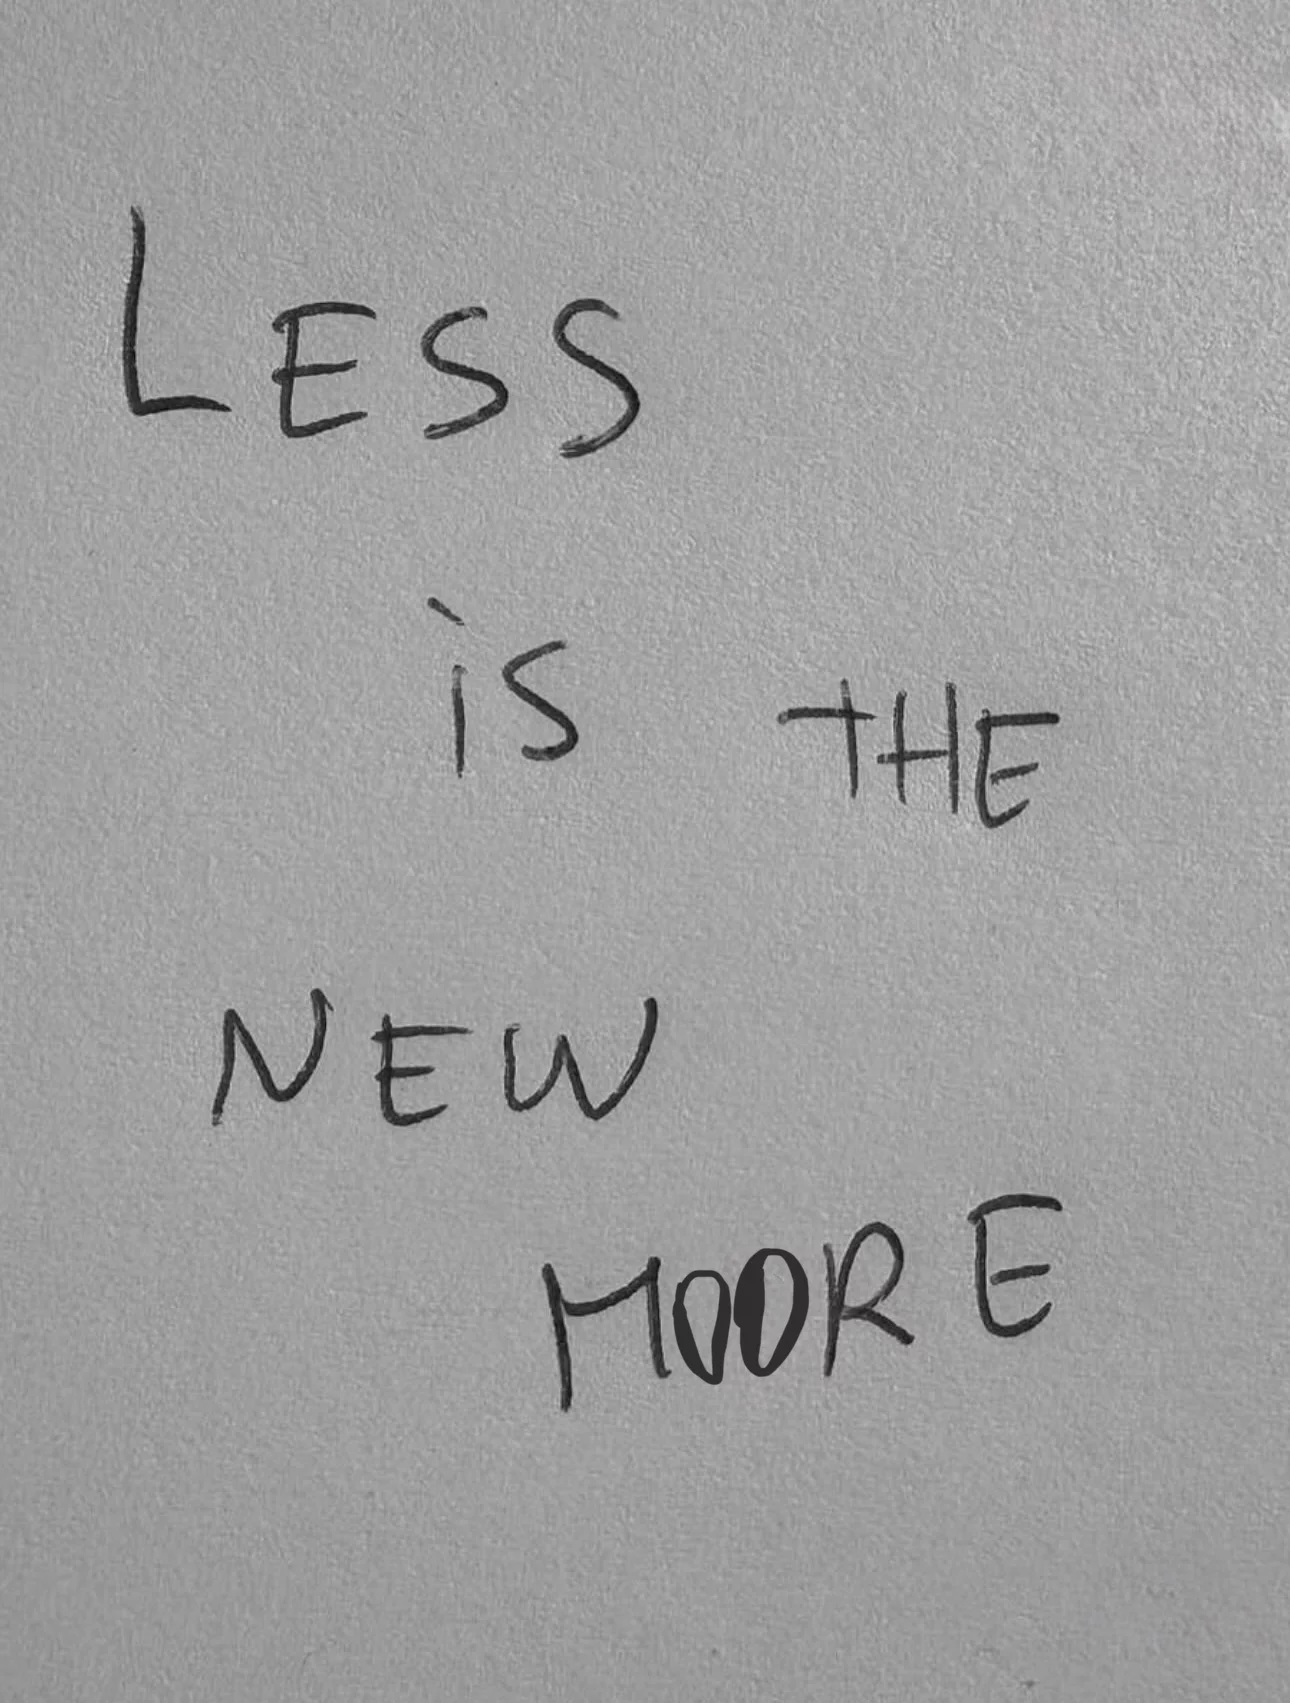 LESS
iS THE
NEW
MOORE